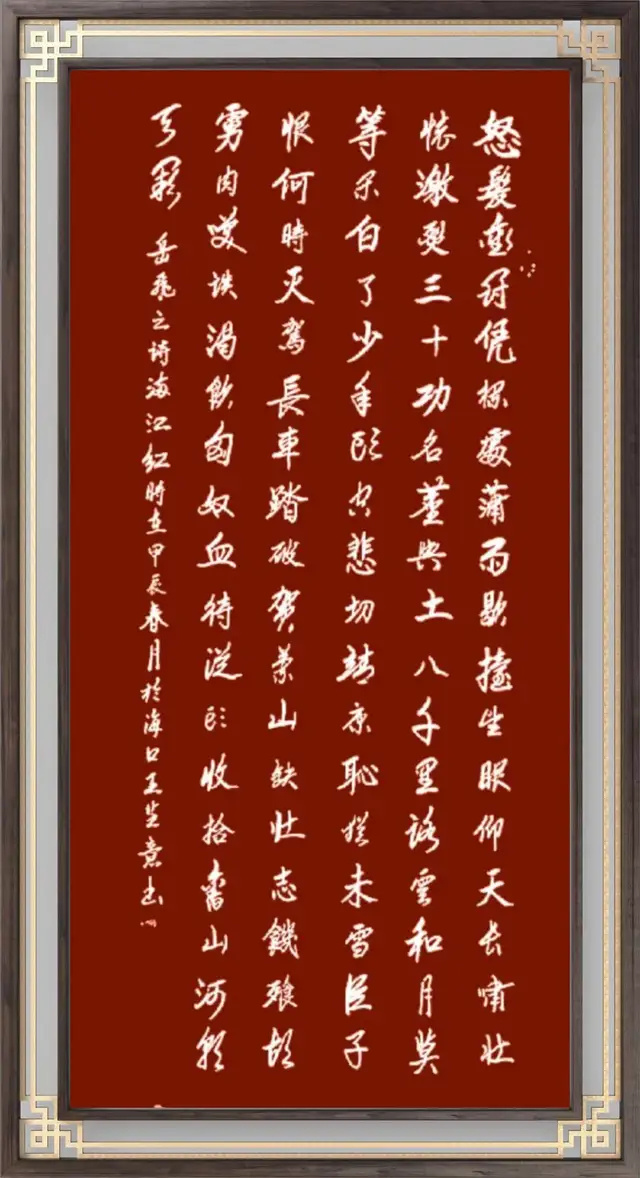 怒髮衝冠凭欄處瀟雨歇擡望眼仰天长嘯壯
懷激烈三十功名塵與土八千里路雲和月莫
等閑白了少年頭空悲切靖康恥猶未雪臣子
恨何時灭駕長車踏破賀蘭山缺壯志饑飱胡
虜肉笑談渴飲匈奴血待從頭收拾舊山河朝
天闕 岳飛之詩滿江紅時在甲辰春月於海口王意书